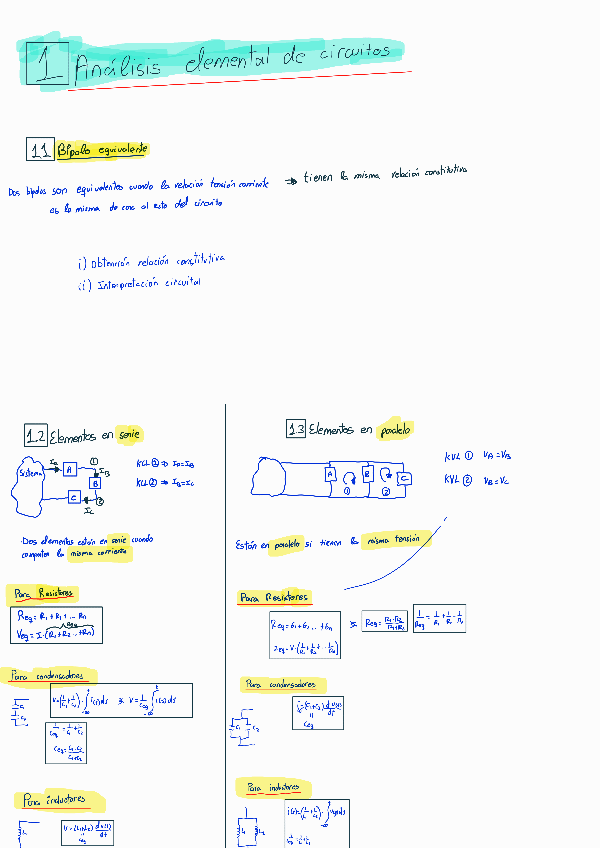 1 Análisis elemental de circuitos
1.1 Bipolo equivalente
Dos bipolos son equivalentes cuando la relación tensión corriente → tienen la misma relación constitutiva
es la misma de cara al esto del circuito
i) Obtención relación constitutiva
ii) Interpretación circuital
1.2 Elementos en serie
Sistema
I_A
A
①
I_B
B
②
C
I_C
KCL ① ⇒ I_A = I_B
KCL ② ⇒ I_B = I_C
Dos elementos están en serie cuando
comparten la misma corriente
Para Resistores
Req = R₁ + R₂ + ... Rn
Veq = I · (R₁ + R₂ ... + Rn)
Para condensadores
C₁
C₂
V = (1/C₁ + 1/C₂) · ∫ i(s) ds & V = 1/Ceq ∫ i(s) ds
1/Ceq = 1/C₁ + 1/C₂
Ceq = C₁ · C₂ / C₁ + C₂
Para inductores
L₁
1.3 Elementos en paralelo
A
B
C
①
②
KVL ① V_A = V_B
KVL ② V_B = V_C
Están en paralelo si tienen la misma tensión
Para Resistores
Req = G₁ + G₂ ... + G
Req = R₁ · R₂ / R₁ + R₂
1/Req = 1/R₁ + 1/R₂ + 1/R₃
Para condensadores
C₁
C₂
i = (C₁ + C₂) dv(s)/ds
Ceq
Para inductores
L₁
L₂